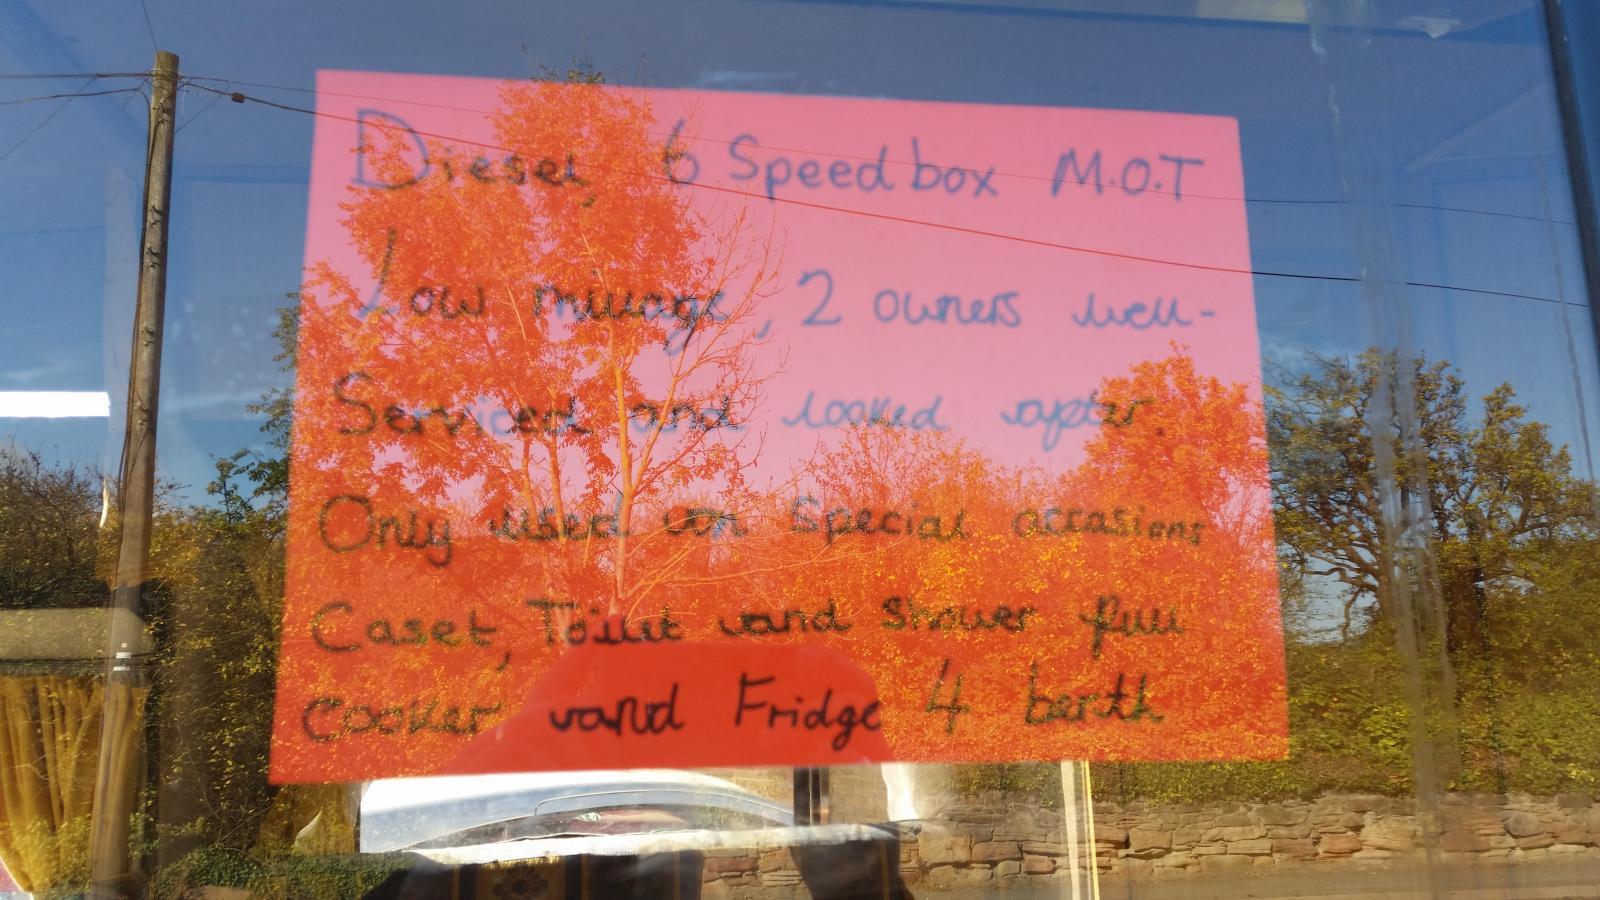 Diesel, 6 Speed box M.O.T
Low mileage, 2 owners well-
Serviced and looked after.
Only used on special occasions
Caset, Toilet and shower full
cooker and Fridge 4 berth